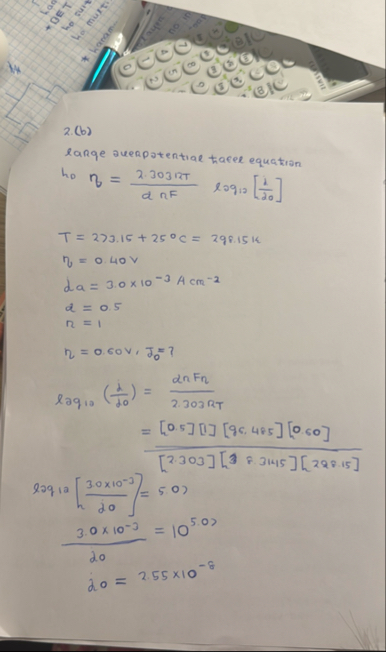 2.(b)
large overpotential tafel equation
η = 2.303RT / αnF log10 [j/j0]
T = 273.15 + 25°C = 298.15K
η = 0.40V
ja = 3.0×10⁻³ A cm⁻²
α = 0.5
n = 1
η = 0.60V, J0 = ?
log10 (j/j0) = αnFη / 2.303RT
= [0.5][1][96,485][0.60] / [2.303][8.3145][298.15]
log10 [3.0×10⁻³ / j0] = 5.07
3.0×10⁻³ / j0 = 10^5.07
j0 = 2.55×10⁻⁸